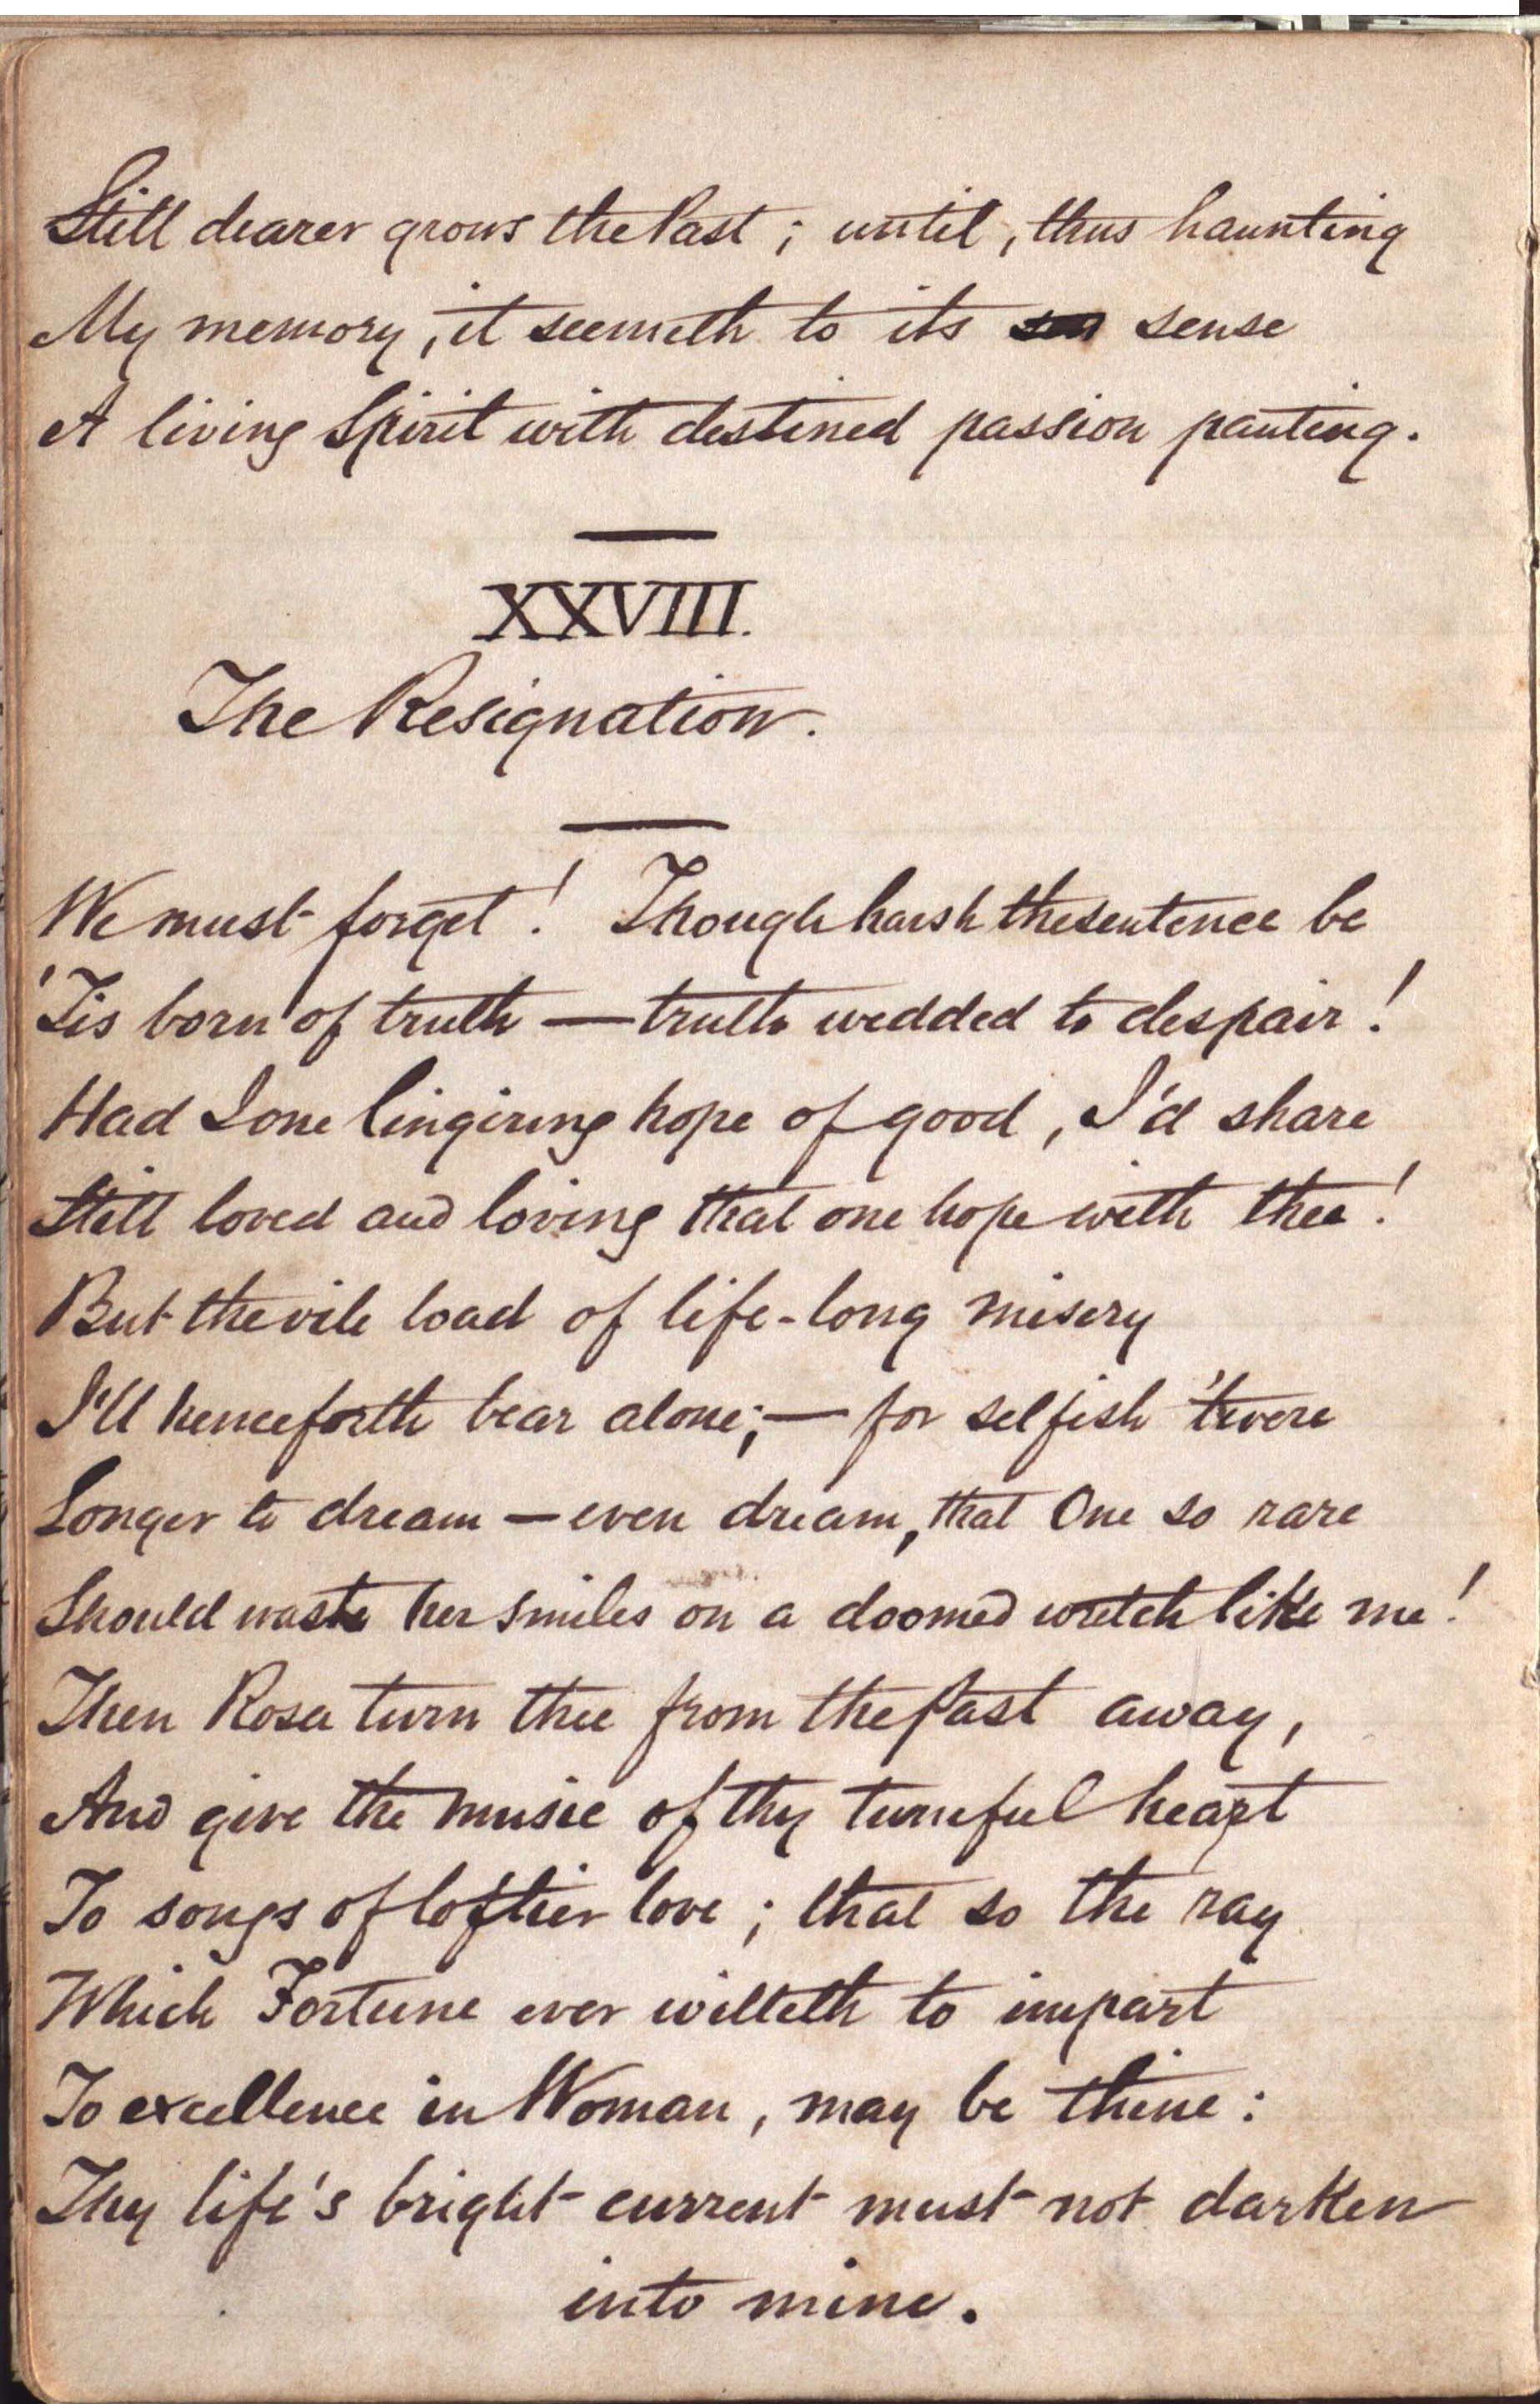 Still dearer grows the Past; until, thus haunting
My memory, it seemeth to its sense
A living Spirit with destined passion panting.
XXVIII.
The Resignation.
We must forget! Though harsh the sentence be
'Tis born of truth — truth wedded to despair!
Had I one lingiring hope of good, I'd share
Still loved and loving that one hope with thee!
But the vile load of life-long misery
I'll henceforth bear alone; — for selfish 'twere
Longer to dream — even dream, that One so rare
Should waste her smiles on a doomed wretch like me!
Then Rosa turn thee from the Past away,
And give the music of thy tuneful heart
To songs of loftier love; that so the ray
Which Fortune ever willeth to impart
To excellence in Woman, may be thine:
Thy life's bright current must not darken
into mine.